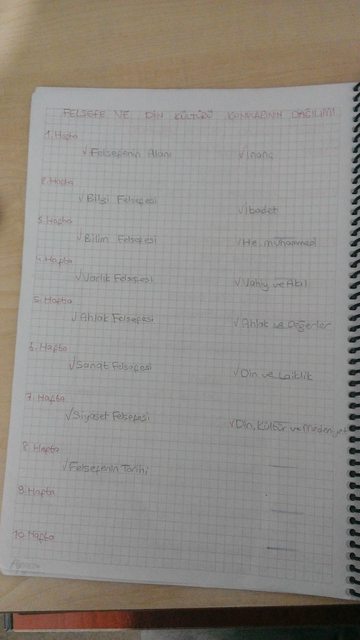 FELSEFE VE DİN KÜLTÜRÜ KONULARININ DAĞILIMI
1. Hafta
√ Felsefenin Alanı √ İnanç
2. Hafta
√ Bilgi Felsefesi √ İbadet
3. Hafta
√ Bilim Felsefesi √ Hz. Muhammed
4. Hafta
√ Varlık Felsefesi √ Vahiy ve Akıl
5. Hafta
√ Ahlak Felsefesi √ Ahlak ve Değerler
6. Hafta
√ Sanat Felsefesi √ Din ve Laiklik
7. Hafta
√ Siyaset Felsefesi √ Din, Kültür ve Medeniyet
8. Hafta
√ Felsefenin Tarihi
9. Hafta
10. Hafta